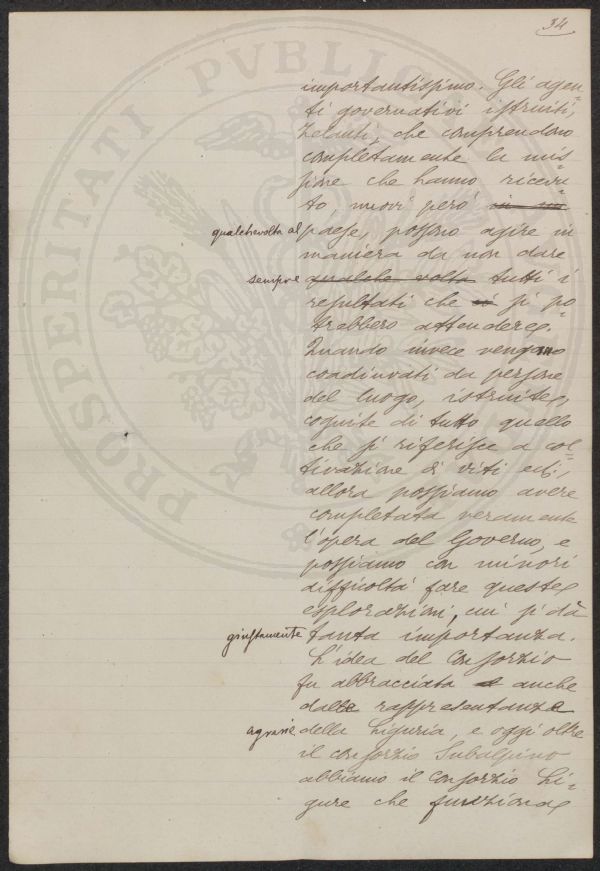 34
PROSPERITATI PVBLICAE
importantissimo. Gli agen-
ti governativi istruiti,
zelanti, che comprendono
completamente la mis-
sione che hanno ricevu-
to, nuovi però in un
qualchevolta al paese, possono agire in
maniera da non dare
sempre qualche volta tutti i
resultati che si po-
trebbero attendere.
Quando invece vengono
coadiuvati da persone
del luogo, istruite,
cognite di tutto quello
che si riferisce a col-
tivazione di viti
allora possiamo avere
completata veramente
l'opera del Governo, e
possiamo con minori
difficoltà fare queste
esplorazioni, cui si dà
giustamente tanta importanza.
L'idea del Consorzio
fu abbracciata anche
dalle rappresentanze
agrarie della Liguria, e oggi oltre
il consorzio Subalpino
abbiamo il Consorzio Li-
gure che funziona